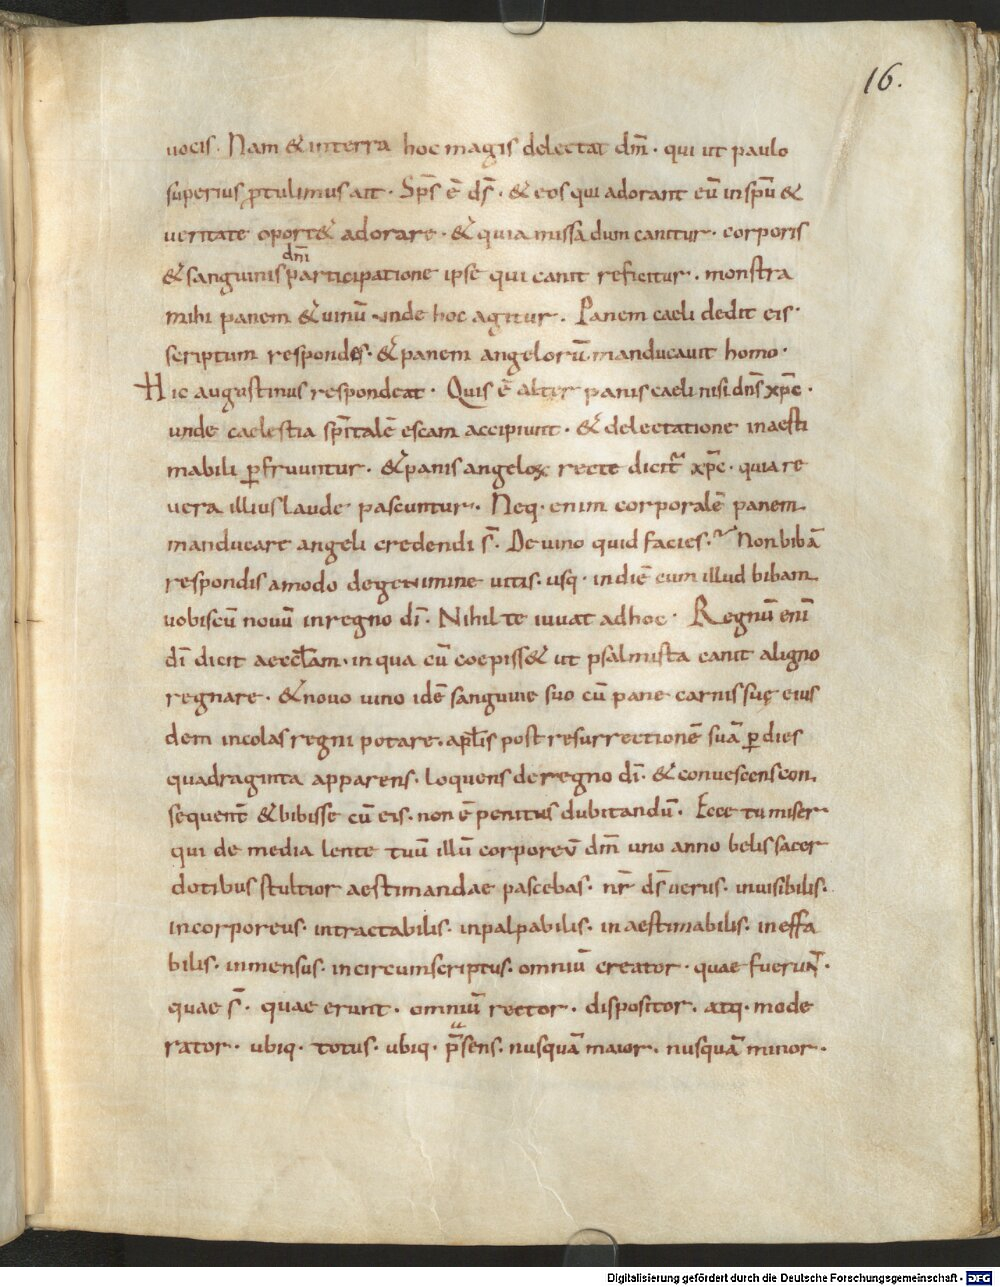 16.
uocis. Nam & interra hoc magis delectat dm̄. qui ut paulo
superius ꝓtulimus ait. Sp̄s ē ds̄. & eos qui adorant eū in spū &
ueritate oport& adorare. & quia missa dum canitur. corporis
dnī
& sanguinis participatione ipse qui canit reficitur. monstra
mihi panem & uinū unde hoc agitur. Panem caeli dedit eis.
scriptum respondes. & panem angelorū manducauit homo.
Hic augustinus respondeat. Quis ē alter panis caeli nisi dn̄s xp̄c.
unde caelestia sp̄italē escam accipiunt. & delectatione inaesti
mabili ꝑfruuntur. & panis angeloꝝ recte dicit᷑ xp̄c. quia re
uera illius laude pascuntur. Neq. enim corporalē panem
manducare angeli credendi s̄. De uino quid facies. Non bibā
respondis amodo de genimine uitis. usq. in diē cum illud bibam
uobiscū nouū in regno dī. Nihil te iuuat ad hoc. Regnū enī
dī dicit aeccl̄am. in qua cū coepiss& ut psalmista canit a ligno
regnare. & nouo uino idē sanguine suo cū pane carnis suę eius
dem incolas regni potare. apl̄is post resurrectionē suā ꝑ dies
quadraginta apparens. loquens de regno dī. & conuescens con
sequent̄ & bibisse cū eis. non ē penitus dubitandū. Ecce tu miser
qui de media lente tuū illū corporeū dm̄ uno anno belis sacer
dotibus stultior aestimandae pascebas. nr̄ ds̄ uerus. inuisibilis.
incorporeus. intractabilis. inpalpabilis. inaestimabilis. ineffa
bilis. inmensus. incircumscriptus. omniū creator. quae fuerun̄t.
quae s̄. quae erunt. omniū rector. dispositor. atq. mode
rator. ubiq. totus. ubiq. p̄sens. nusquā maior. nusquā minor.
Digitalisierung gefördert durch die Deutsche Forschungsgemeinschaft - DFG